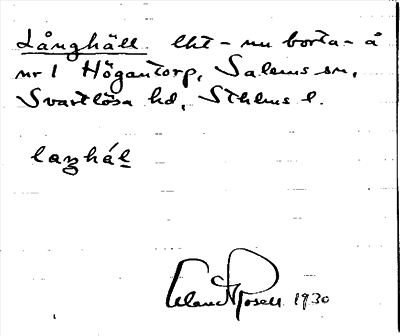 Långhäll. lht - nu borta - å
nr 1 Högantorp, Salems sn,
Svartlösa hd, Sthlms l.
laŋhál
Posell 1930